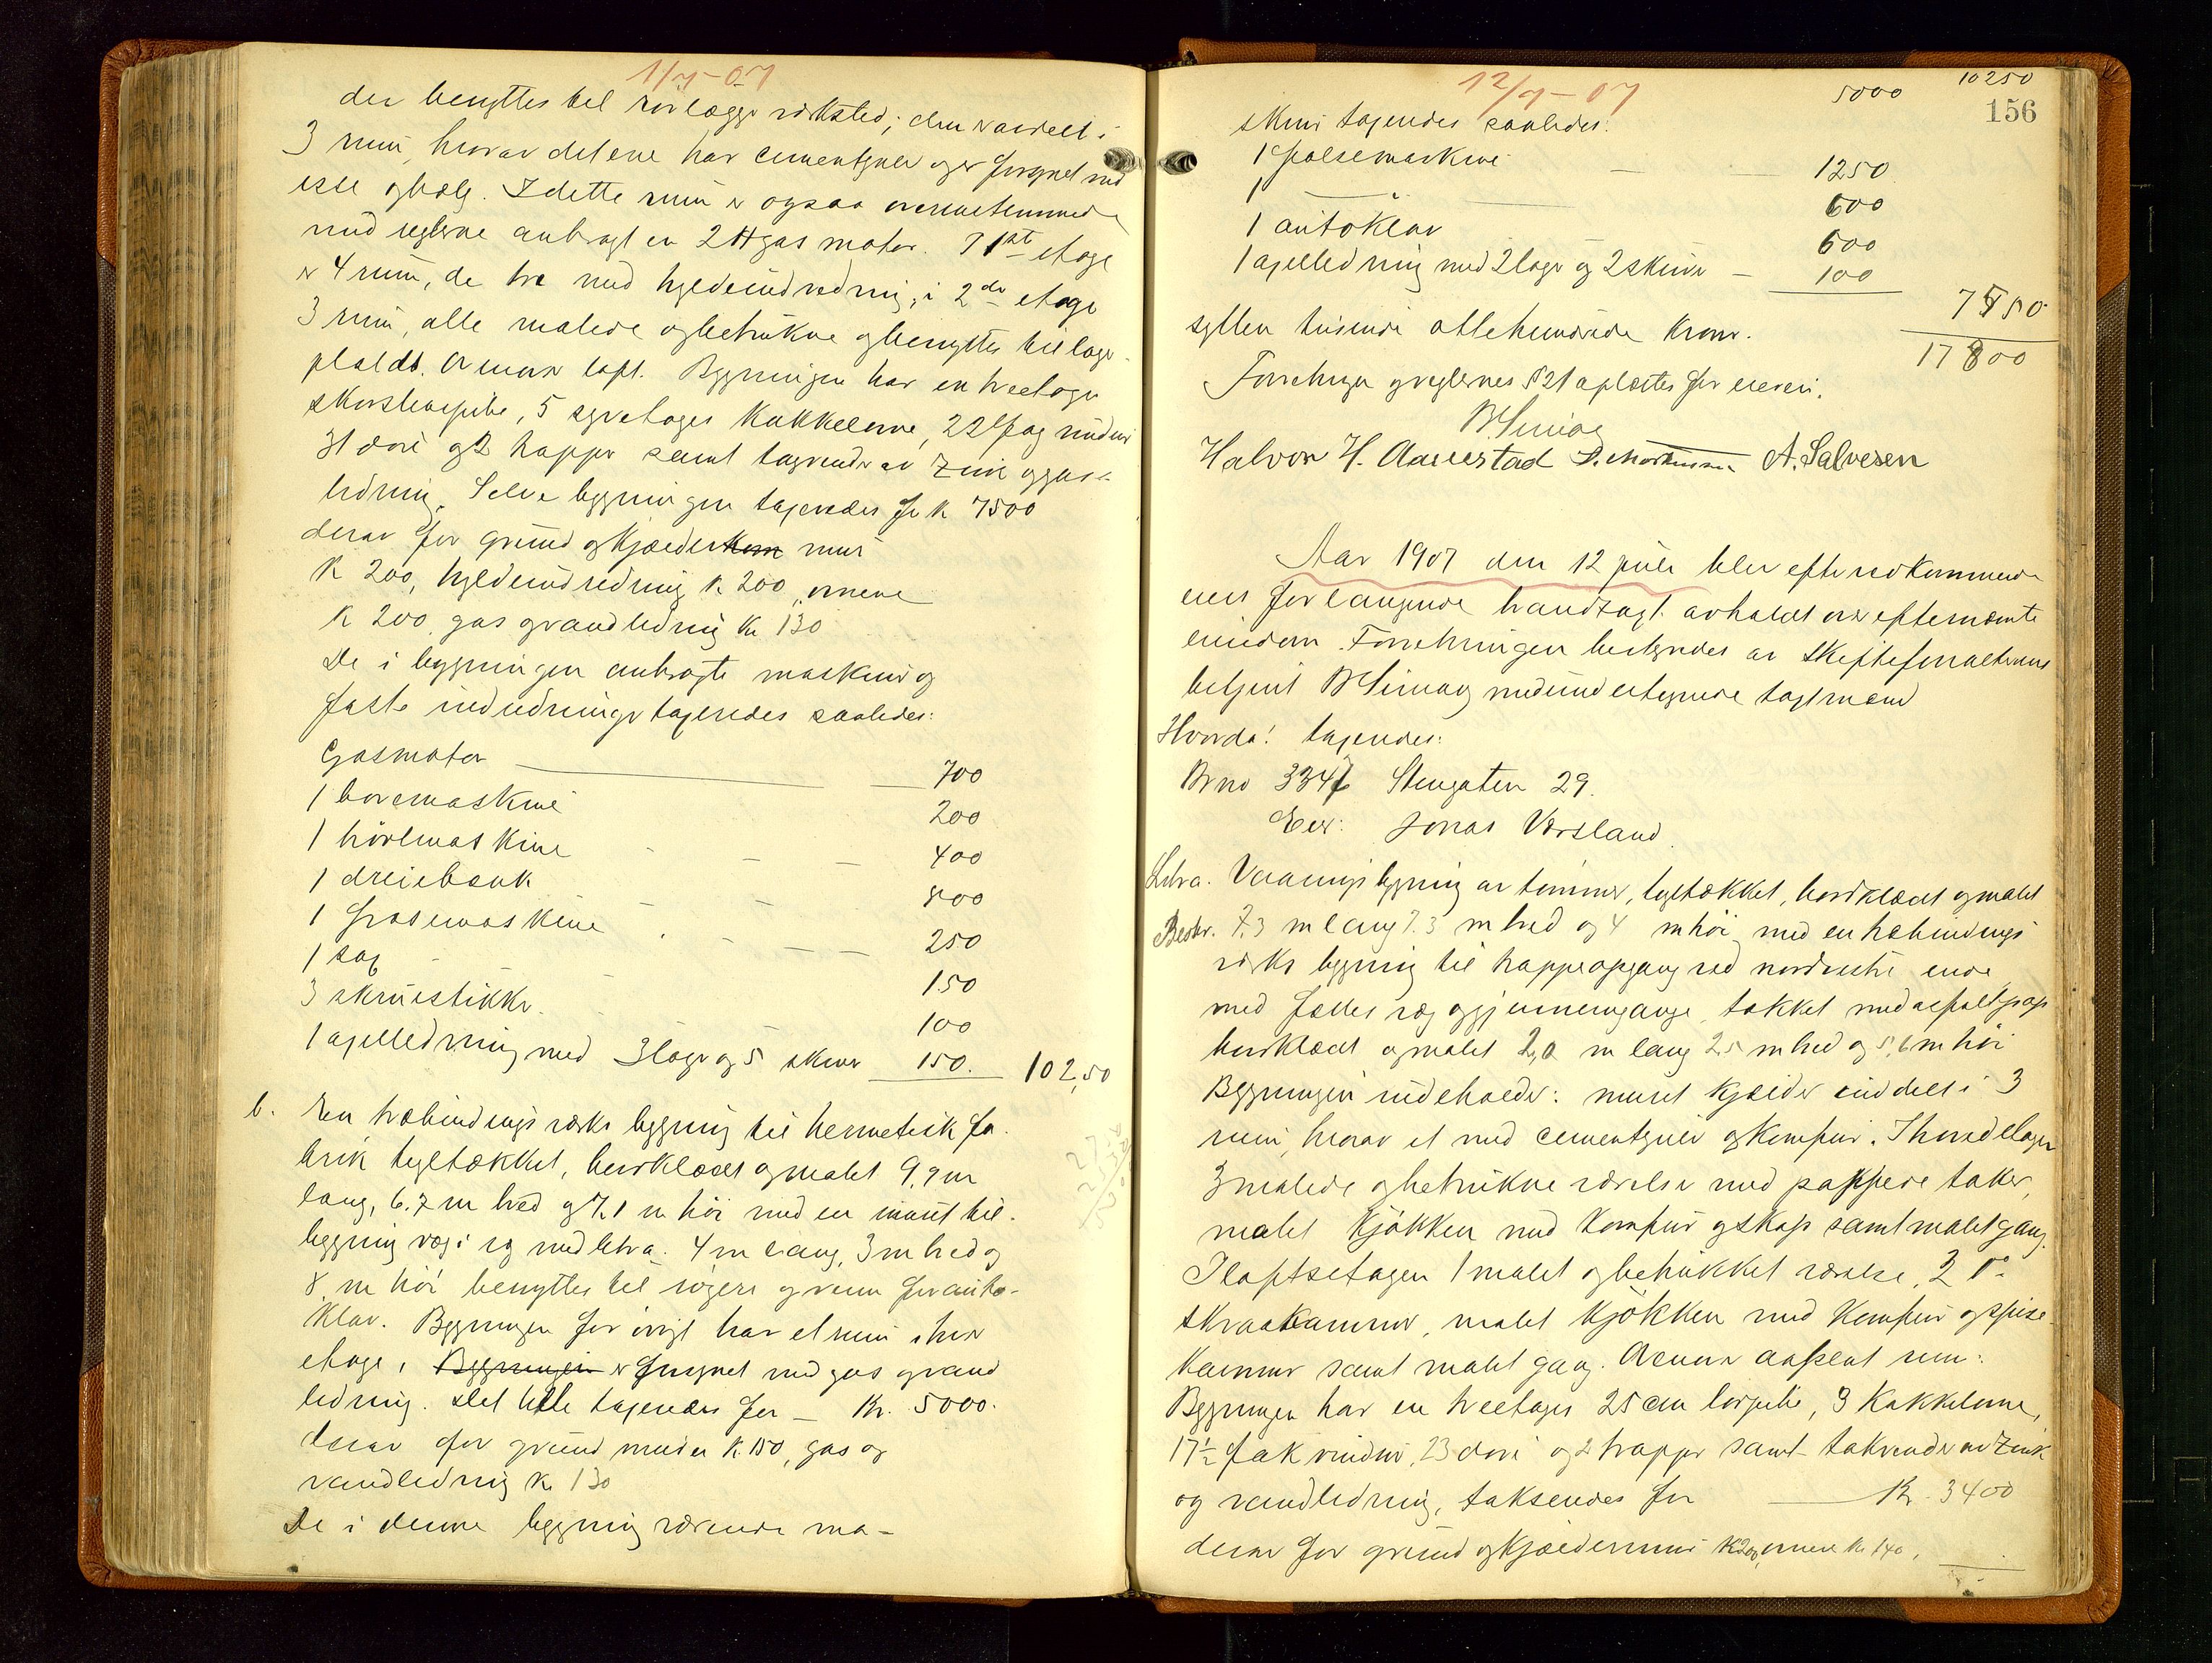 1/7-07
der benyttes til rørlæggerverksted; den er avdelt i
3 rum, hvorav det ene har cementgulv og er forsynet med
esse og bælg. I dette rum er ogsaa overensstemmende
med reglerne anbragt en 2 H gasmotor. I 1ste etage
er 4 rum, de tre med hyldeindredning, i 2den etage
3 rum, alle malede og betrukne og benyttes til lager-
plads. Ovenover loft. Bygningen har en treetages
skorstenspibe, 5 syvetages kakkelovne, 22 fag vinduer
31 døre og 2 trapper samt tagrender av zink og gas-
ledning. Selve bygningen taxeredes for k 7500
derav for grund og kjælder mur
k 200, hyldeindredning k 200, ovnene
k 200, gas og vandledning kr 130
De i bygningen anbragte maskiner og
faste indredninger taxeredes saaledes:
Gasmotor 700
1 boremaskine 200
1 høvlmaskine 400
1 dreiebænk 800
1 fræsemaskine 250
1 sag 150
3 skruestikker 100
1 axelledning med 3 lager og 5 skiver 150. 10250
b. En træbindingsverks bygning til hermetikfa-
brik tegltækket, bordklædt og malet 9,9 m
lang, 6.7 m bred og 7.1 m høi med en muret til-
bygning væg i væg med litra a. 4 m lang, 3 m bred og
8 m høi benyttes til røgeri og rum for auto-
klav. Bygningen for øvrigt har et rum i hver
etage, Bygningen er forsynet med gas og vand
ledning. Det hele taxeredes for – Kr. 5000.
derav for grund muren k 150, gas og
vandledning k 130
De i denne bygning værende ma-
12/7-07
5000 10250
156
skiner taxeredes saaledes:
1 falsemaskine – 1250
1 — — 600
1 autoklav 600
1 axelledning med 2 lager og 2 skiver – 100
7550
17800
sytten tusinde ottehundrede kroner.
Forretningen og reglernes § 21 oplæstes for eieren.
Halvor H. Aarrestad A. Salvesen
Aar 1907 den 12 juli blev efter vedkommende
eiers forlangende brandtaxt avholdt over efternævnte
eiendom. Forretningen bestyredes av skifteforvalterens
betjent og med undertegnede taxtmænd
Hvorda! taxeredes:
Br no 334 Stengaten 29.
Eier: Jonas Versland
Litra a. Vaaningsbygning av tømmer, tegltækket, bordklædt og malet
Beskr. 7.3 m lang 7.3 m bred og 4 m høi med en træbindings
verks bygning til trappeopgang ved nordvestre ende
med fælles væg og gjennemgange tækket med asfaltpap
bordklædt og malet 2,0 m lang 2.5 m bred og 5,6 m høi
Bygningen indeholder: muret kjælder inddelt i 3
rum, hvorav et med cementgulv og komfur. I hovedetagen
3 malede og betrukne værelser med pappede taker,
malet kjøkken med komfur og skap samt malet gang.
I loftsetagen 1 malet og betrukket værelse, 2 do
skraakammer, malet kjøkken med komfur og spise-
kammer samt malet gang. Ovenover avpælt rum.
Bygningen har en treetages 25 cm løspibe, 3 kakkelovne,
17½ fak vinduer, 23 døre og 2 trapper samt takrender av zink
og vandledning, takseredes for — Kr. 3400
derav for grund og kjældermur k 200, ovnene kr 140,